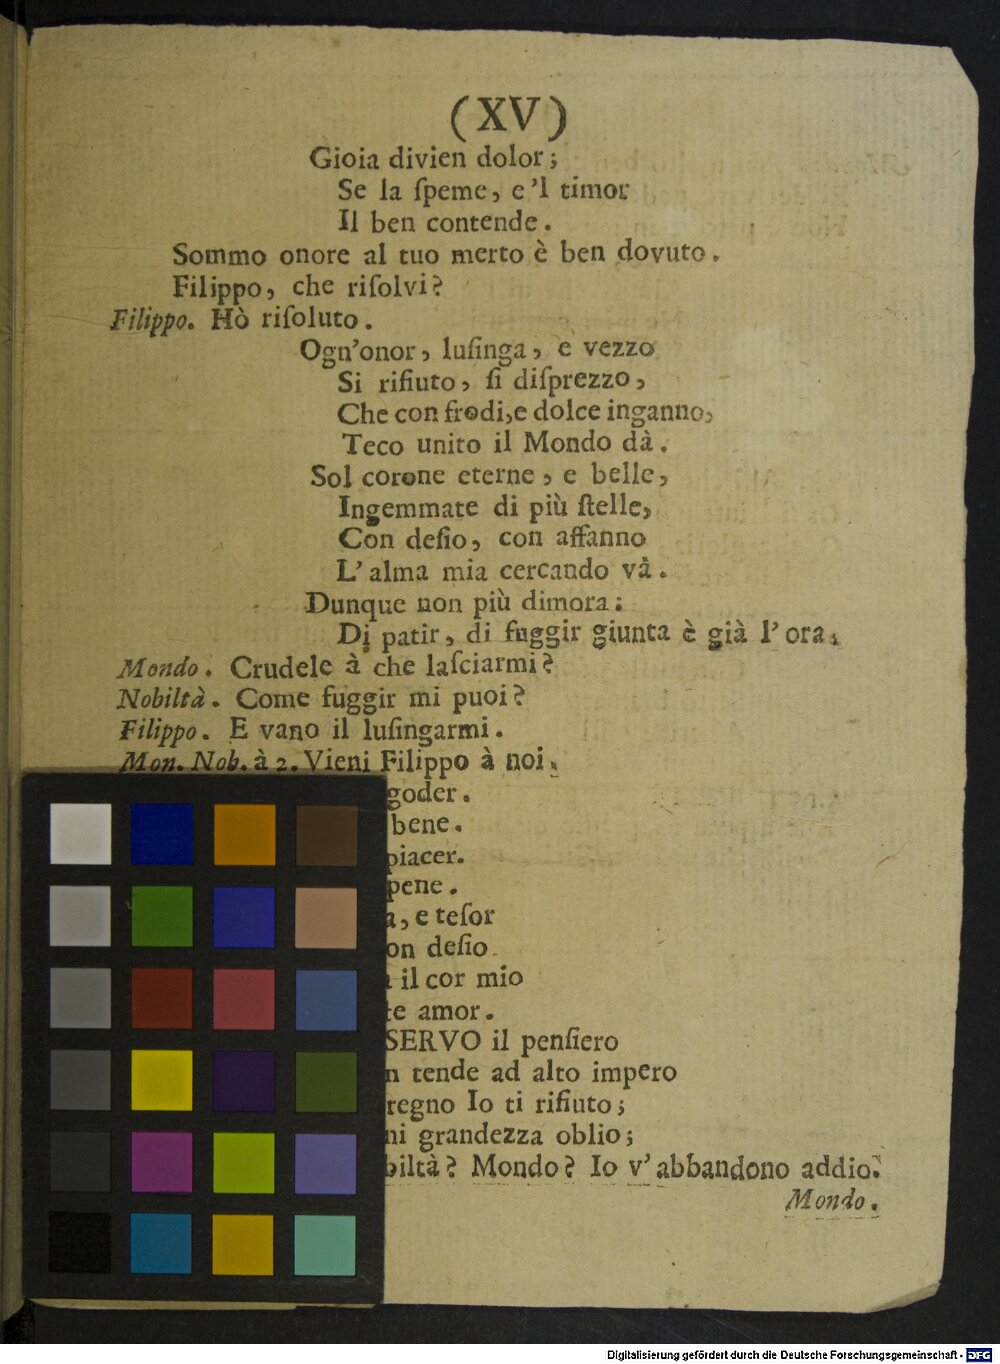 (XV)
Gioia divien dolor;
Se la ſpeme, e 'l timor
Il ben contende.
Sommo onore al tuo merto è ben dovuto.
Filippo, che riſolvi?
Filippo. Hò riſoluto.
Ogn'onor, luſinga, e vezzo
Si rifiuto, ſi diſprezzo,
Che con frodi, e dolce inganno,
Teco unito il Mondo dà.
Sol corone eterne, e belle,
Ingemmate di più ſtelle,
Con deſio, con affanno
L' alma mia cercando và.
Dunque non più dimora:
Di patir, di fuggir giunta è già l' ora.
Mondo. Crudele à che laſciarmi?
Nobiltà. Come fuggir mi puoi?
Filippo. E vano il luſingarmi.
Mon. Nob. à 2. Vieni Filippo à noi.
goder.
bene.
piacer.
pene.
, e teſor
deſio
il cor mio
amor.
SERVO il penſiero
tende ad alto impero
regno Io ti rifiuto;
grandezza oblio;
biltà? Mondo? Io v' abbandono addio.
Mondo.
Digitalisierung gefördert durch die Deutsche Forschungsgemeinschaft - DFG